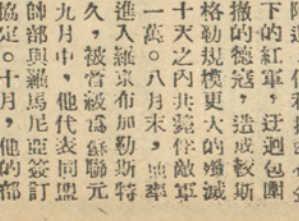 下的紅軍，迂迴包圍
撤的德寇，造成較斯
格勒規模更大的殲滅
十天之內共斃俘敵軍
一萬。八月末，他率
進入羅京布加勒斯特
久，被首被爲蘇聯元
九月中，他代表同盟
師部與羅馬尼亞簽訂
協定。十月，他的部